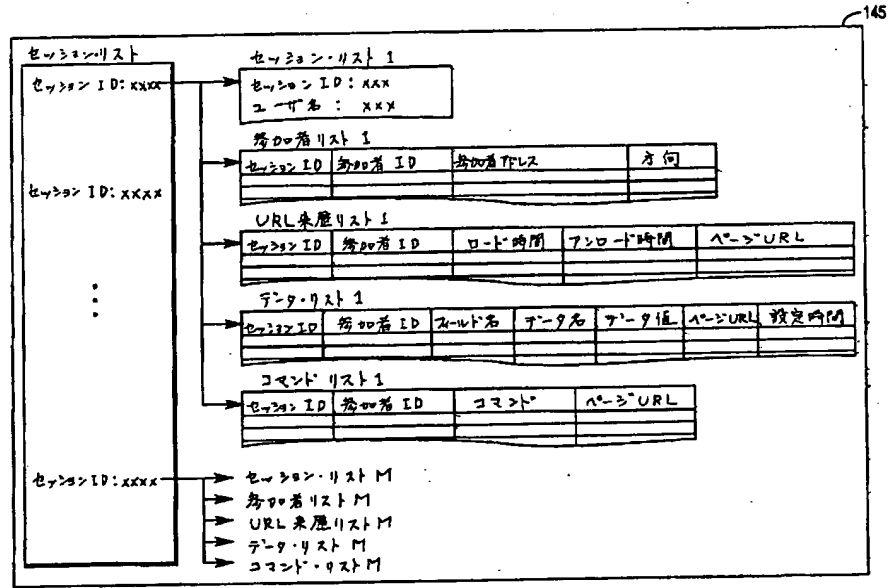 145
セッション・リスト
セッション ID: xxxx
セッション ID: xxxx
セッション ID: xxxx
セッション・リスト 1
セッション ID: xxx
ユーザ名: xxx
参加者リスト 1
セッション ID 参加者 ID 参加者アドレス 方向
URL来歴リスト 1
セッション ID 参加者 ID ロード時間 アンロード時間 ページURL
データ・リスト 1
セッション ID 参加者 ID フィールド名 データ名 データ値 ページURL 設定時間
コマンド リスト 1
セッション ID 参加者 ID コマンド ページURL
セッション・リスト M
参加者リスト M
URL来歴リスト M
データ・リスト M
コマンド・リスト M